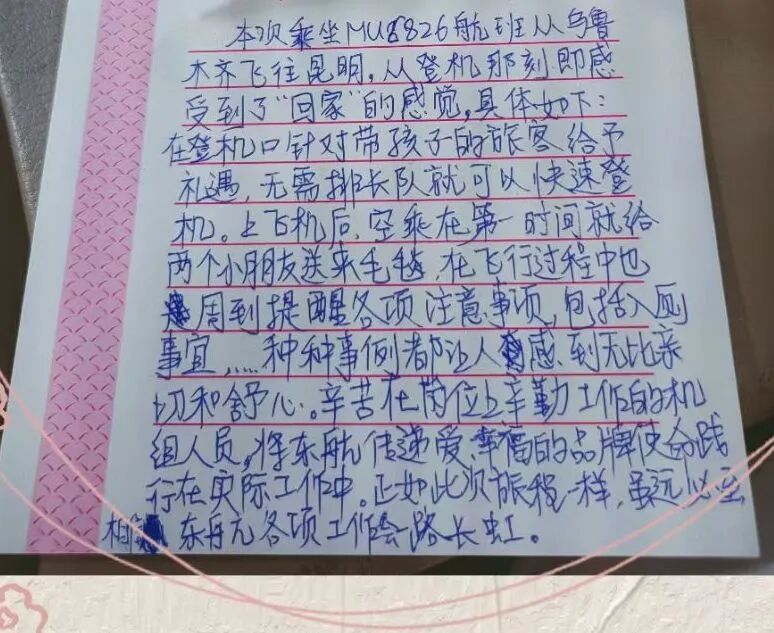 本次乘坐MU8826航班从乌鲁
木齐飞往昆明，从登机那刻即感
受到了“回家”的感觉，具体如下：
在登机口针对带孩子的旅客给予
礼遇，无需排长队就可以快速登
机。上飞机后，空乘在第一时间就给
两个小朋友送来毛毯，在飞行过程中也
周到提醒各项注意事项，包括入厕
事宜，……种种事例都让人感到无比亲
切和舒心。辛苦在岗位上辛勤工作的机
组人员，将东航传递爱、幸福的品牌使命践
行在实际工作中。正如此次旅程一样，虽远必至
相 东航各项工作会路长虹。